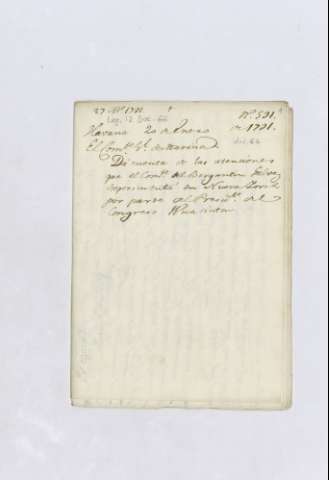 27 1791
Leg. 12 Doc. 64
Nº. 591.
Havana 20 de Enero de 1791.
doc. 64
El Comte. Gl. de Marina
Dà cuenta de las atenciones
que el Comte. del Bergantin
en Nueva York
por parte del Presidte. del
Congreso Wuasinton